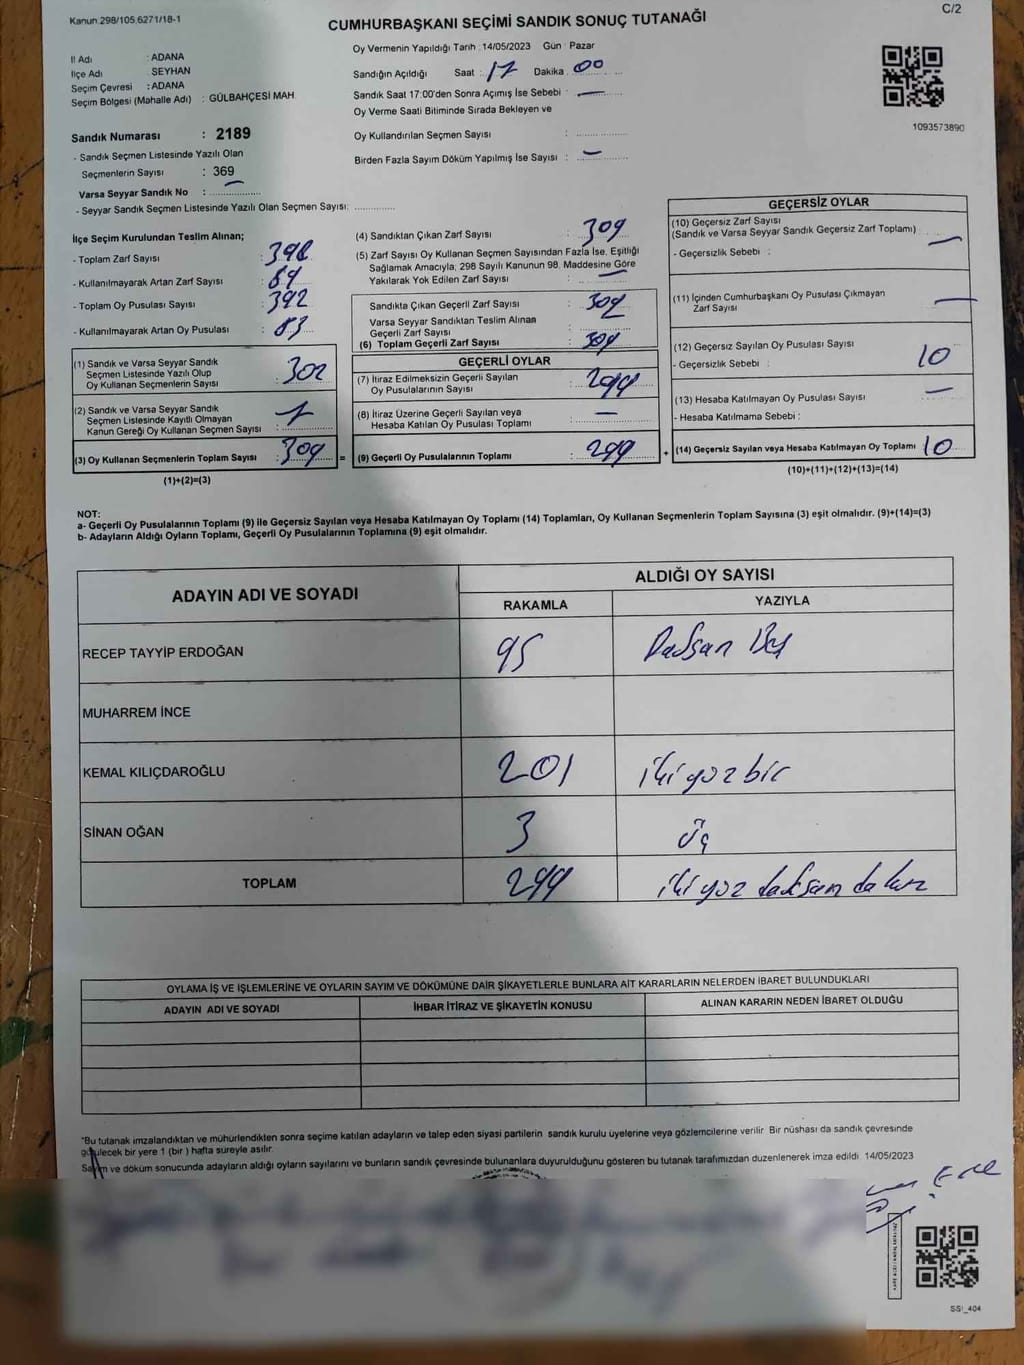 Kanun 298/105,6271/18-1
C/2
CUMHURBAŞKANI SEÇİMİ SANDIK SONUÇ TUTANAĞI
İl Adı : ADANA
İlçe Adı : SEYHAN
Seçim Çevresi : ADANA
Seçim Bölgesi (Mahalle Adı) : GÜLBAHÇESİ MAH.
Sandık Numarası : 2189
- Sandık Seçmen Listesinde Yazılı Olan
Seçmenlerin Sayısı : 369
Varsa Seyyar Sandık No :
- Seyyar Sandık Seçmen Listesinde Yazılı Olan Seçmen Sayısı:
Oy Vermenin Yapıldığı Tarih : 14/05/2023 Gün : Pazar
Sandığın Açıldığı Saat : 17 Dakika : 00
Sandık Saat 17:00'den Sonra Açımış İse Sebebi :
Oy Verme Saati Bitiminde Sırada Bekleyen ve
Oy Kullandırılan Seçmen Sayısı :
Birden Fazla Sayım Döküm Yapılmış İse Sayısı :
1093573890
İlçe Seçim Kurulundan Teslim Alınan;
- Toplam Zarf Sayısı :
- Kullanılmayarak Artan Zarf Sayısı :
- Toplam Oy Pusulası Sayısı : 392
- Kullanılmayarak Artan Oy Pusulası : 83
(1) Sandık ve Varsa Seyyar Sandık
Seçmen Listesinde Yazılı Olup
Oy Kullanan Seçmenlerin Sayısı : 302
(2) Sandık ve Varsa Seyyar Sandık
Seçmen Listesinde Kayıtlı Olmayan
Kanun Gereği Oy Kullanan Seçmen Sayısı : 7
(3) Oy Kullanan Seçmenlerin Toplam Sayısı : 309 =
(1)+(2)=(3)
(4) Sandıktan Çıkan Zarf Sayısı : 309
(5) Zarf Sayısı Oy Kullanan Seçmen Sayısından Fazla İse, Eşitliği
Sağlamak Amacıyla; 298 Sayılı Kanunun 98. Maddesine Göre
Yakılarak Yok Edilen Zarf Sayısı :
Sandıkta Çıkan Geçerli Zarf Sayısı : 309
Varsa Seyyar Sandıktan Teslim Alınan
Geçerli Zarf Sayısı :
(6) Toplam Geçerli Zarf Sayısı : 309
GEÇERLİ OYLAR
(7) İtiraz Edilmeksizin Geçerli Sayılan
Oy Pusulalarının Sayısı : 299
(8) İtiraz Üzerine Geçerli Sayılan veya
Hesaba Katılan Oy Pusulası Toplamı :
(9) Geçerli Oy Pusulalarının Toplamı : 299 +
GEÇERSİZ OYLAR
(10) Geçersiz Zarf Sayısı
(Sandık ve Varsa Seyyar Sandık Geçersiz Zarf Toplamı) :
- Geçersizlik Sebebi :
(11) İçinden Cumhurbaşkanı Oy Pusulası Çıkmayan
Zarf Sayısı :
(12) Geçersiz Sayılan Oy Pusulası Sayısı : 10
- Geçersizlik Sebebi :
(13) Hesaba Katılmayan Oy Pusulası Sayısı :
- Hesaba Katılmama Sebebi :
(14) Geçersiz Sayılan veya Hesaba Katılmayan Oy Toplamı : 10
(10)+(11)+(12)+(13)=(14)
NOT:
a- Geçerli Oy Pusulalarının Toplamı (9) ile Geçersiz Sayılan veya Hesaba Katılmayan Oy Toplamı (14) Toplamları, Oy Kullanan Seçmenlerin Toplam Sayısına (3) eşit olmalıdır. (9)+(14)=(3)
b- Adayların Aldığı Oyların Toplamı, Geçerli Oy Pusulalarının Toplamına (9) eşit olmalıdır.
ADAYIN ADI VE SOYADI
ALDIĞI OY SAYISI
RAKAMLA YAZIYLA
RECEP TAYYİP ERDOĞAN 95
MUHARREM İNCE
KEMAL KILIÇDAROĞLU 201 iki yüz bir
SİNAN OĞAN 3 üç
TOPLAM 299 iki yüz
OYLAMA İŞ VE İŞLEMLERİNE VE OYLARIN SAYIM VE DÖKÜMÜNE DAİR ŞİKAYETLERLE BUNLARA AİT KARARLARIN NELERDEN İBARET BULUNDUKLARI
ADAYIN ADI VE SOYADI İHBAR İTİRAZ VE ŞİKAYETİN KONUSU ALINAN KARARIN NEDEN İBARET OLDUĞU
*Bu tutanak imzalandıktan ve mühürlendikten sonra seçime katılan adayların ve talep eden siyasi partilerin sandık kurulu üyelerine veya gözlemcilerine verilir. Bir nüshası da sandık çevresinde
görülecek bir yere 1 (bir) hafta süreyle asılır.
Sayım ve döküm sonucunda adayların aldığı oyların sayılarını ve bunların sandık çevresinde bulunanlara duyurulduğunu gösteren bu tutanak tarafımızdan düzenlenerek imza edildi. 14/05/2023
SSI_404